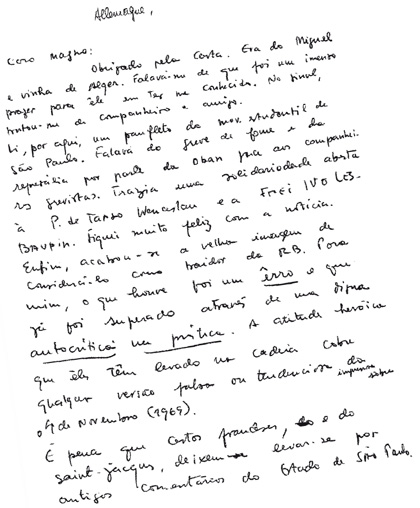 Allemagne,
Caro Magno:
Obrigado pela Carta. Era do Miguel
e vinha de Alger. Falava-me de que foi um imenso
prazer para êle em ter me conhecido. No final,
tratou-me de companheiro e amigo.
Li, por aqui, um panfleto do mov. estudantil de
São Paulo. Falava da greve de fome e da
represália por parte da Oban para aos companhei-
ros grevistas. Trazia uma solidariedade aberta
à P. de Tarso Wenceslau e a FREI IVO LES-
BAUPIN. Fiquei muito feliz com a notícia.
Enfim, acabou-se a velha imagem de
considerá-lo como traidor da RB. Para
mim, o que houve foi um êrro e que
já foi superado através de uma digna
autocrítica na prática. A atitude heróica
que êles têm levado na cadeia cobre
qualquer versão falsa ou tendenciosa da imprensa sobre
o 4 de Novembro (1969).
É pena que certos franceses, e do
Saint-Jacques, deixem levar-se por
antigos comentários do Estado de São Paulo.